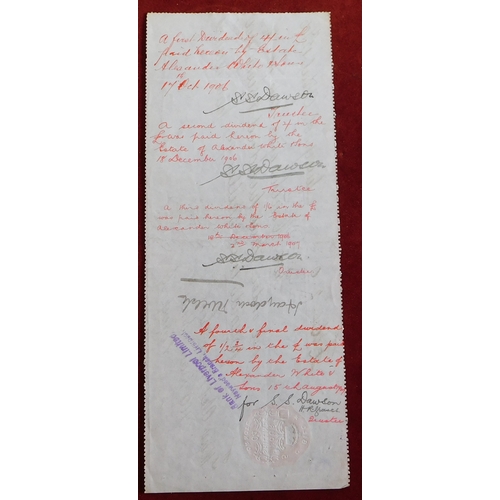 A first Dividend of 4/- in £
paid hereon by Estate
Alexander White & Sons
17th Oct 1906
S.S. Dawson
Trustee
A second dividend of 4/- in the
£ was paid hereon by the
Estate of Alexander White & Sons
18 December 1906
S.S. Dawson
Trustee
A third dividend of 1/- in the £
was paid hereon by the Estate of
Alexander White & Sons
2nd March 1907
S.S. Dawson
Trustee
Haydon Welch
A fourth & final dividend
of in the £ was paid
hereon by the Estate of
Alexander White &
Sons 15 August
for S.S. Dawson
Trustee
Bank of Liverpool Limited